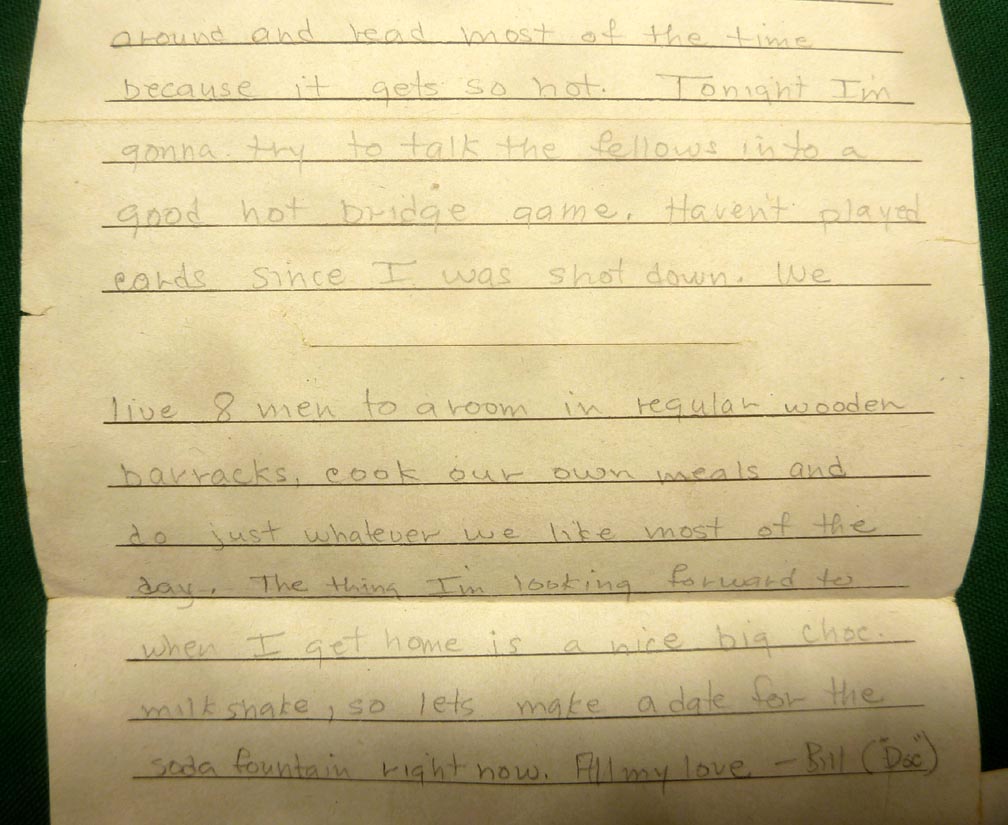 around and read most of the time
because it gets so hot. Tonight I'm
gonna try to talk the fellows into a
good hot bridge game. Haven't played
cards since I was shot down. We
live 8 men to a room in regular wooden
barracks, cook our own meals and
do just whatever we like most of the
day. The thing I'm looking forward to
when I get home is a nice big choc.
milkshake, so lets make a date for the
soda fountain right now. All my love - Bill ("Doc")